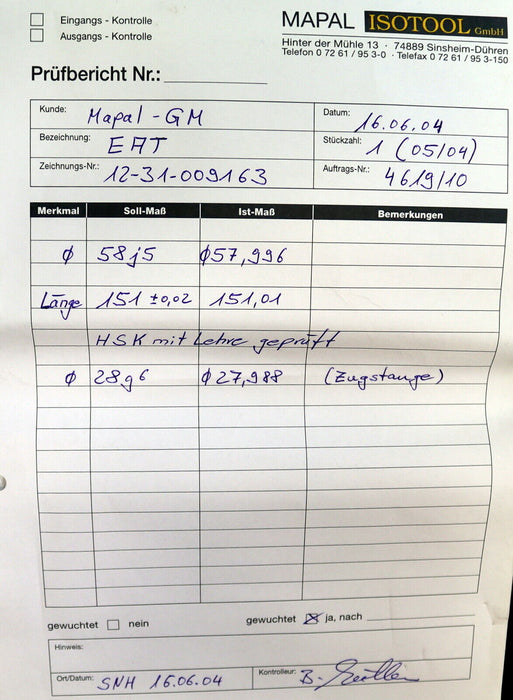 Eingangs - Kontrolle
Ausgangs - Kontrolle
MAPAL ISOTOOL GmbH
Hinter der Mühle 13 · 74889 Sinsheim-Dühren
Telefon 0 72 61 / 95 3-0 · Telefax 0 72 61 / 95 3-150
Prüfbericht Nr.:
Kunde: Mapal - GM
Datum: 16.06.04
Bezeichnung: EAT
Stückzahl: 1 (05/04)
Zeichnungs-Nr.: 12-31-009163
Auftrags-Nr.: 4619/10
Merkmal Soll-Maß Ist-Maß Bemerkungen
ϕ 58j5 ϕ57,996
Länge 151 ±0,02 151,01
HSK mit Lehre geprüft
ϕ 28g6 ϕ27,988 (Zugstange)
gewuchtet nein gewuchtet ja, nach
Hinweis:
Ort/Datum: SNH 16.06.04
Kontrolleur: B.